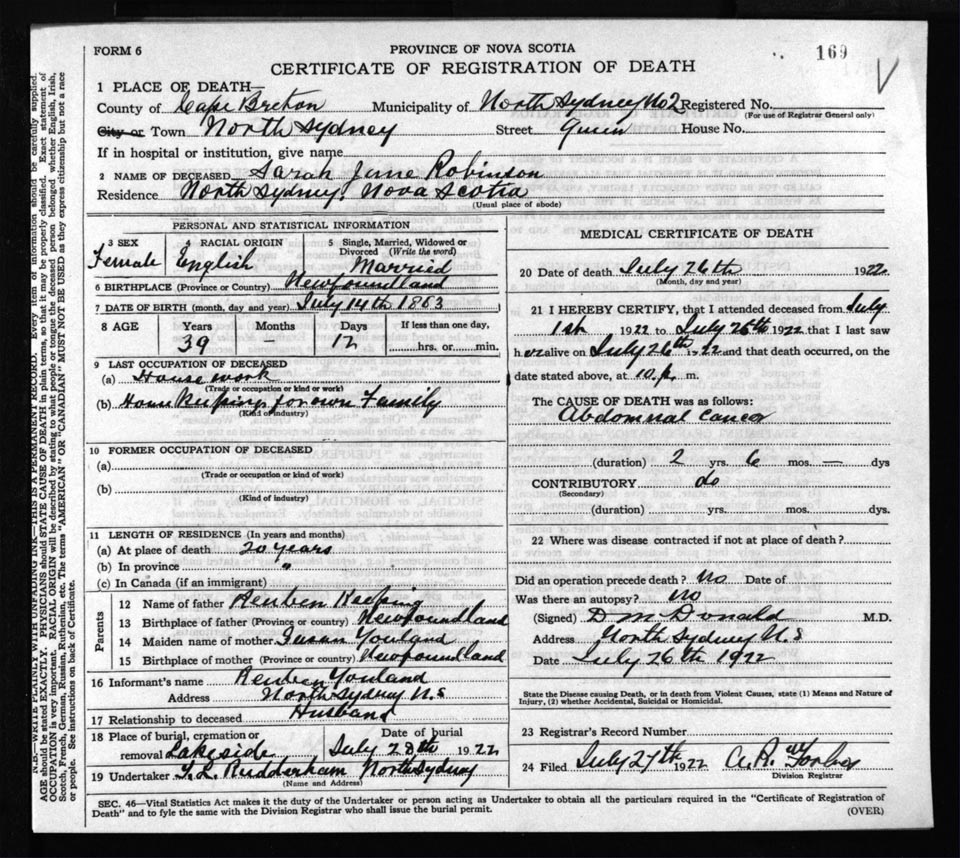 FORM 6
PROVINCE OF NOVA SCOTIA
169
CERTIFICATE OF REGISTRATION OF DEATH
1 PLACE OF DEATH—
County of Cape Breton Municipality of North Sydney No2 Registered No.
(For use of Registrar General only)
City or Town North Sydney Street Queen House No.
If in hospital or institution, give name
2 NAME OF DECEASED Sarah Jane Robinson
Residence North Sydney, Nova Scotia
(Usual place of abode)
PERSONAL AND STATISTICAL INFORMATION
3 SEX Female
4 RACIAL ORIGIN English
5 Single, Married, Widowed or Divorced (Write the word) Married
6 BIRTHPLACE (Province or Country) Newfoundland
7 DATE OF BIRTH (month, day and year) July 14th 1883
8 AGE Years Months Days If less than one day,
39 — 12 hrs. or min.
9 LAST OCCUPATION OF DECEASED
(a) House work
(Trade or occupation or kind of work)
(b) House Keeping for own Family
(Kind of industry)
10 FORMER OCCUPATION OF DECEASED
(a)
(Trade or occupation or kind of work)
(b)
(Kind of industry)
11 LENGTH OF RESIDENCE (In years and months)
(a) At place of death 20 years
(b) In province "
(c) In Canada (if an immigrant)
Parents
12 Name of father Reuben Keeping
13 Birthplace of father (Province or country) Newfoundland
14 Maiden name of mother Susan Youland
15 Birthplace of mother (Province or country) Newfoundland
16 Informant's name Reuben Youland
Address North Sydney N.S
17 Relationship to deceased Husband
18 Place of burial, cremation or removal Lakeside
Date of burial July 28th 1922
19 Undertaker T. L. Rudderham North Sydney
(Name and Address)
MEDICAL CERTIFICATE OF DEATH
20 Date of death July 26th 1922
(Month, day and year)
21 I HEREBY CERTIFY, that I attended deceased from July
1st 1922 to July 26th 1922 that I last saw
her alive on July 26th 1922 and that death occurred, on the
date stated above, at 10.p. m.
The CAUSE OF DEATH was as follows:
Abdomnal cancer
(duration) 2 yrs. 6 mos. — dys
CONTRIBUTORY do
(Secondary)
(duration) yrs. mos. dys.
22 Where was disease contracted if not at place of death?
Did an operation precede death? no Date of
Was there an autopsy? no
(Signed) D McDonald M.D.
Address North Sydney N.S
Date July 26th 1922
State the Disease causing Death, or in death from Violent Causes, state (1) Means and Nature of
Injury, (2) whether Accidental, Suicidal or Homicidal.
23 Registrar's Record Number
24 Filed July 27th 1922 Forbes
Division Registrar
SEC. 46—Vital Statistics Act makes it the duty of the Undertaker or person acting as Undertaker to obtain all the particulars required in the "Certificate of Registration of
Death" and to fyle the same with the Division Registrar who shall issue the burial permit.
(OVER)
N.B.—WRITE PLAINLY WITH UNFADING INK—THIS IS A PERMANENT RECORD. Every item of information should be carefully supplied.
AGE should be stated EXACTLY. PHYSICIANS should STATE CAUSE OF DEATH in plain terms, so that it may be properly classified. Exact statement of
OCCUPATION is very important. RACIAL ORIGIN will be described by stating to what people or tongue the deceased person belonged whether English, Irish,
Scotch, French, German, Russian, Ruthenian, etc. The terms "AMERICAN" OR "CANADIAN" MUST NOT BE USED as they express citizenship but not a race
or people. See instructions on back of Certificate.